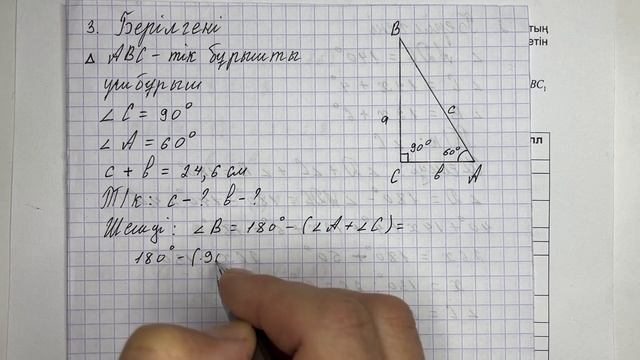 3. Берілгені
Δ ABC - тік бұрышты
үшбұрыш
∠ C = 90°
∠ A = 60°
c + b = 24,6 см
Т/к: c - ? b - ?
Шешуі: ∠B = 180° - (∠A + ∠C) =
180° - (90
B
a
c
90°
60°
C
b
A
тың
етін
BC₁
лл